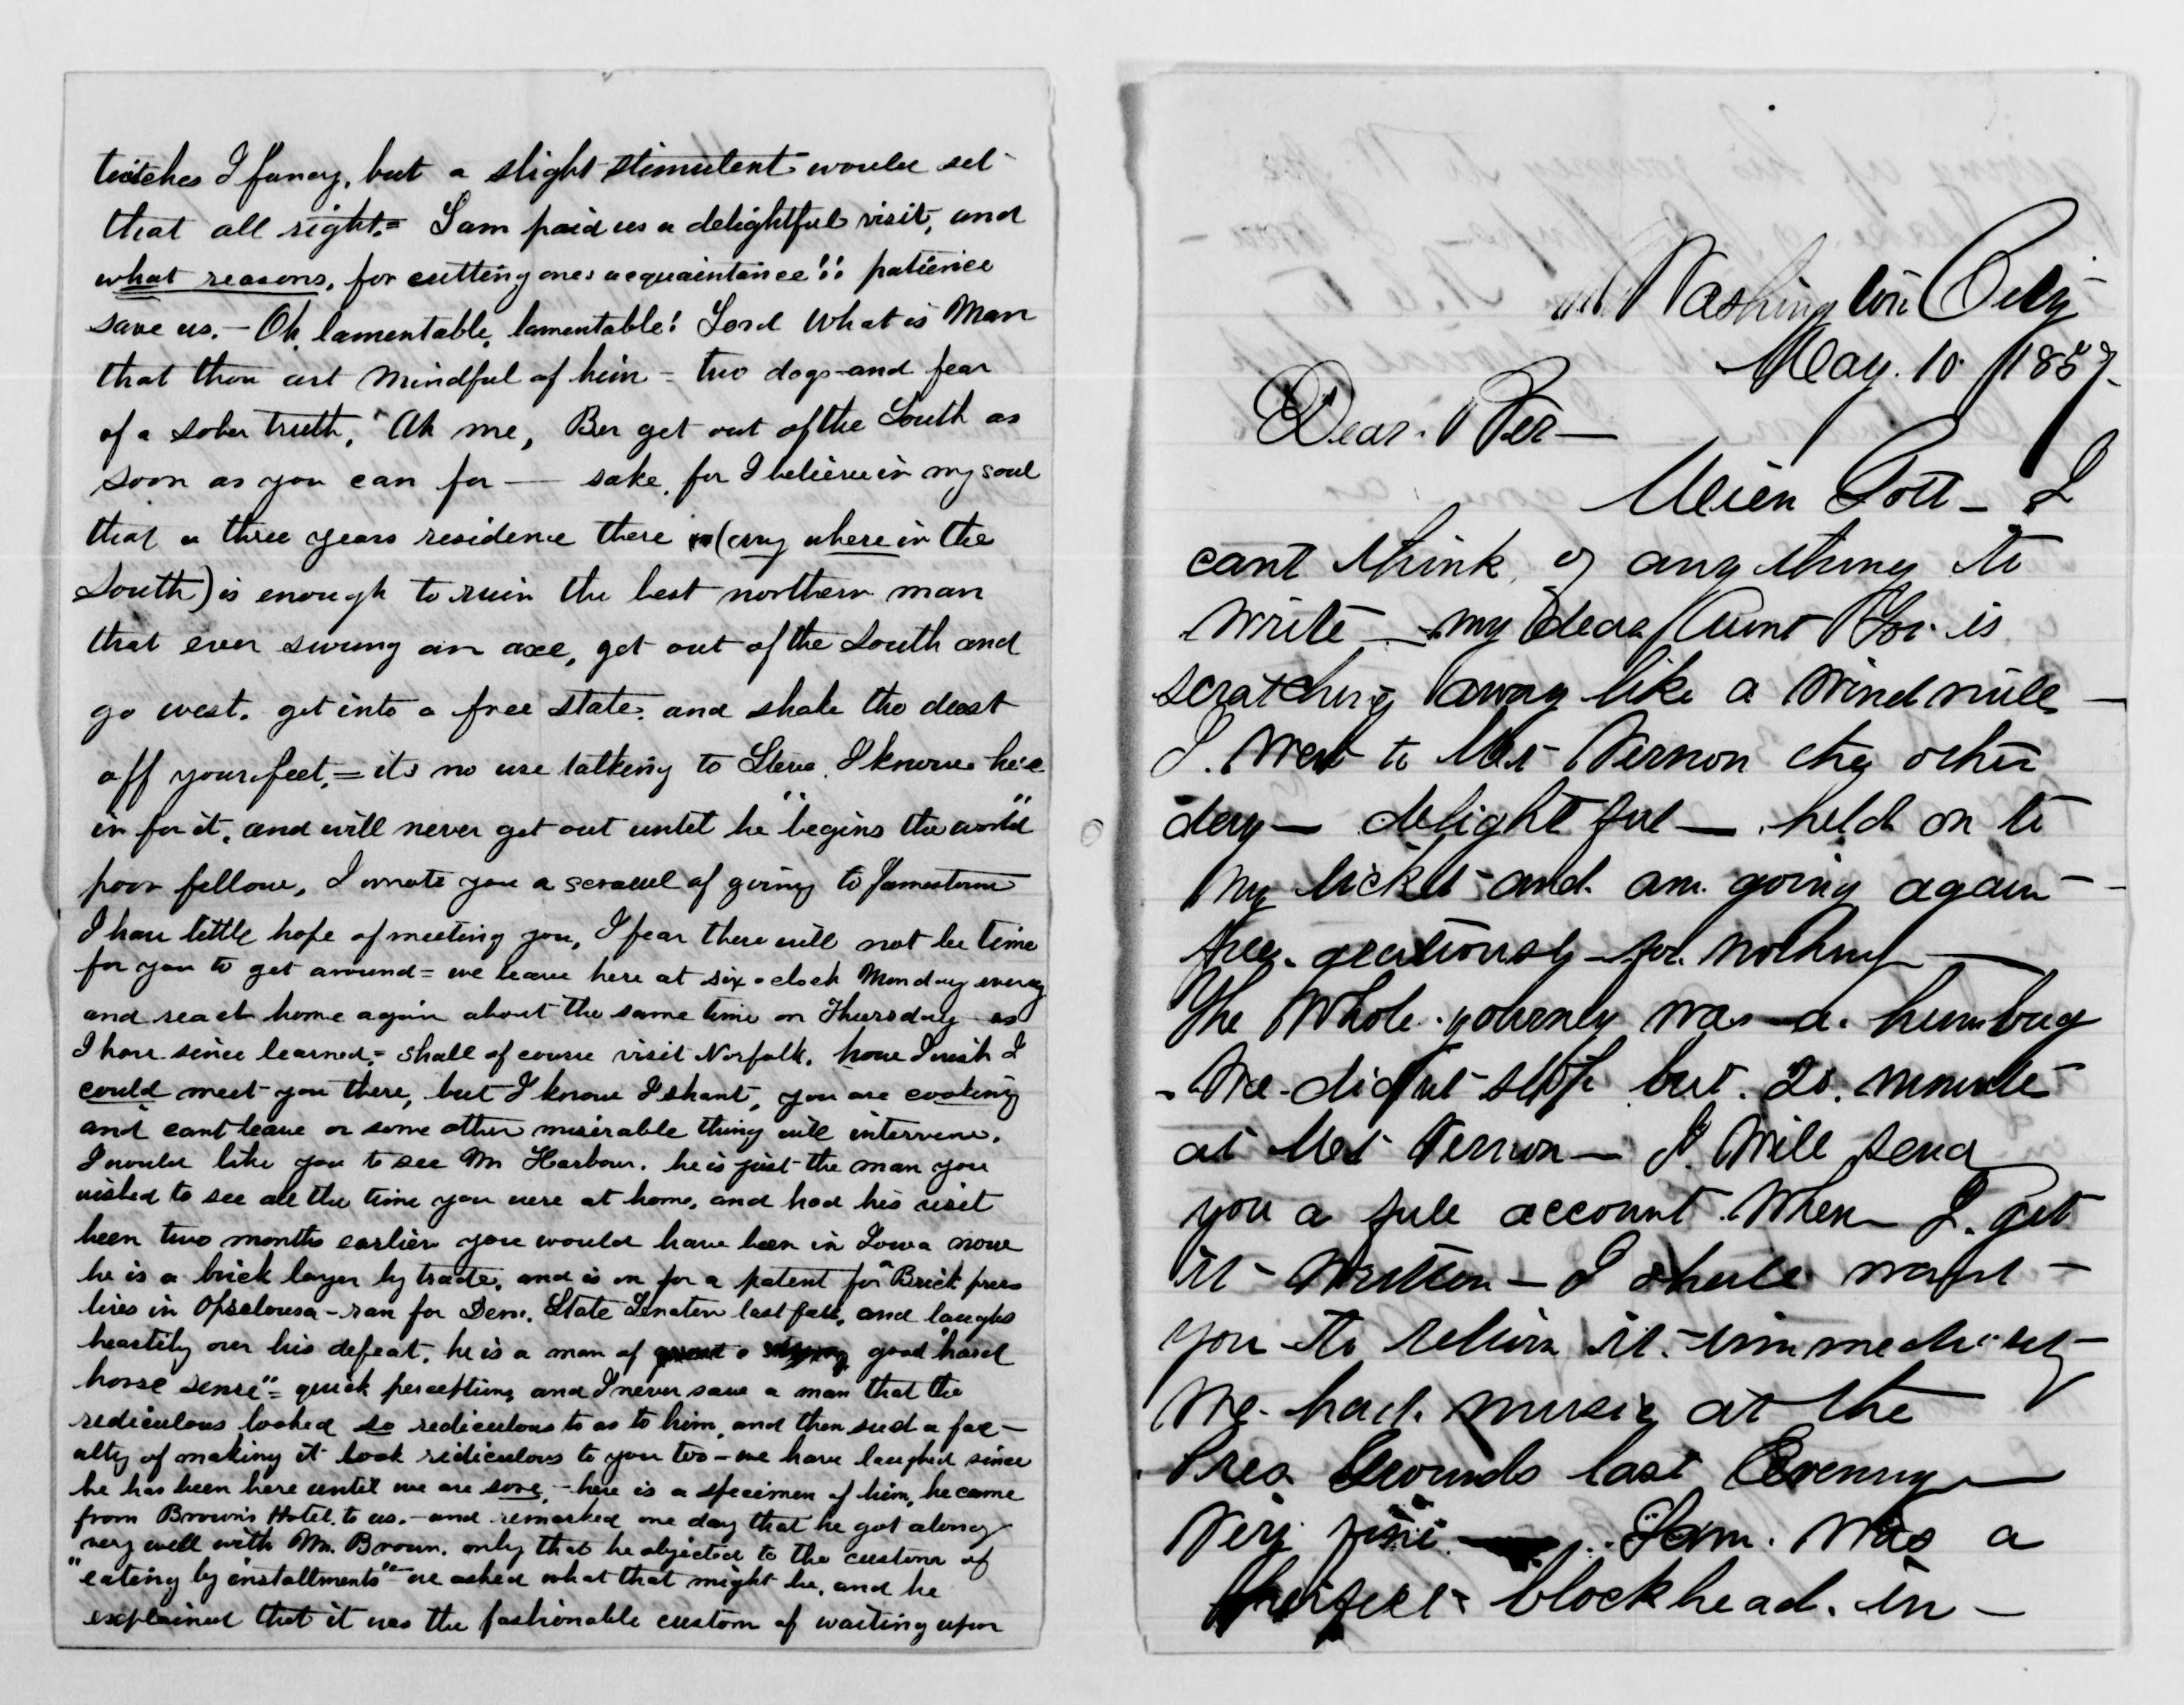 twitches I fancy, but a slight stimulent would set
that all right.= Sam paid us a delightful visit, and
what reasons, for cutting ones acquaintance!! patience
save us.- Oh, lamentable, lamentable! Lord What is Man
that thou art Mindful of him - two dogs and fear
of a sober truth, Ah me, Ber get out of the South as
soon as you can for — sake, for I believe in my soul
that a three years residence there (any where in the
South) is enough to ruin the best northern man
that ever swung an axe, get out of the South and
go west. get into a free state. and shake the dust
off your feet.= its no use talking to Steve. I know he's
in for it, and will never get out until he "begins the world"
poor fellow, I wrote you a scrawl of going to Jamestown
I have little hope of meeting you, I fear there will not be time
for you to get around= we leave here at six oclock Monday eveng
and reach home again about the same time on Thursday as
I have since learned,= shall of course visit Norfolk. how I wish I
could meet you there, but I know I shant, you are cooking
and cant leave or some other miserable thing will intervene.
I would like you to see Mr Harbour. he is just the man you
wished to see all the time you were at home, and had his visit
been two months earlier you would have been in Iowa now
he is a brick layer by trade, and is on for a patent for a Brick press
lives in Opselousa - ran for Dem. State Senator last fall, and laughs
heartily over his defeat. he is a man of good "hard
horse sense"= quick perceptions and I never saw a man that the
rediculous looked so rediculous to as to him, and then such a fac-
alty of making it look ridiculous to you too - we have laughed since
he has been here until we are sore, - here is a specimen of him, he came
from Brown's Hotel, to us. - and remarked one day that he got along
very well with Mr. Brown. only that he objected to the custom of
"eating by installments" we asked what that might be, and he
explained that it was the fashionable custom of waiting upon
Washington City
May. 10 1857.
Dear. Ber—
Mien Gott - I
cant think of any thing to
write - my dear Aunt Lou is
scratching away like a wind mill —
I. went to Mt Vernon the other
day — delightful — held on to
my ticket and am going again —
free. gratiously for nothing —
The Whole journey was a. humbug
- We didnt stop but. 20. minutes
at Mt Vernon — I will send
you a full account When I. get
it - Written - I shall want -
you to return it - immediately
We had. music at the
Pres. Grounds last Evening —
Very fine. Sam. Was a
perfect blockhead. in —